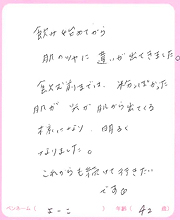 飲み始めてから
肌のツヤに違いが出てきました。
飲む前までは、粉っぽかった
肌が 艶が肌から出てくる
様になり、明るく
なりました。
これからも続けて行きたい
です
ペンネーム( よーこ ) 年齢( 42 歳)